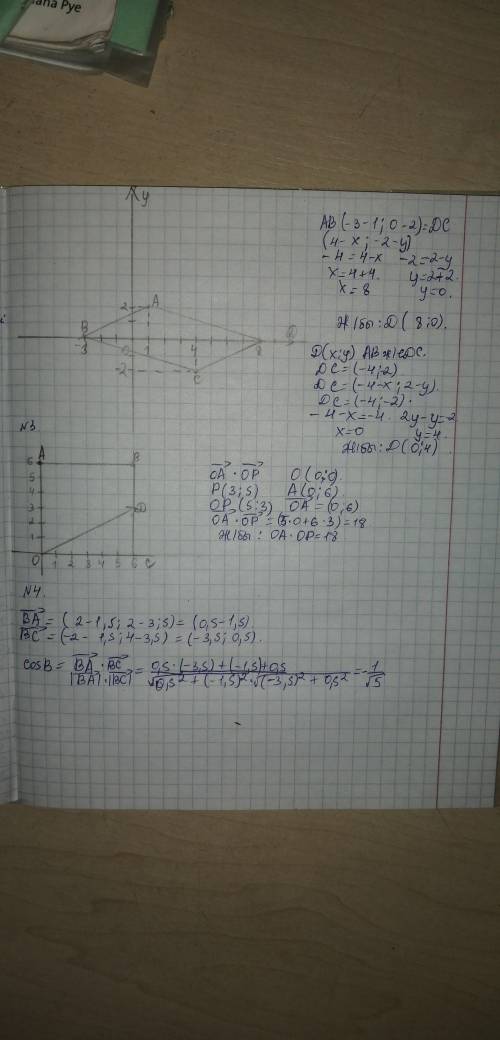 ana Pye
y
AB(-3-1; 0-2)=DC
(4-x; -2-y)
-4=4-x -2=2-y
x=4+4. y=2+2.
x=8 y=0.
Ж/бы: D(8;0).
2 A
B D
-3 0 1 4 8
-2 C
D(x;y) AB ж/е DC.
DC=(-4;-2)
DC=(-4-x; 2-y)
DC=(-4;-2).
-4-x=-4. 2y-y=-2
x=0 y=4.
Ж/бы: D(0;4)
N3.
A B
6
5
4
3 D
2
1
0 1 2 3 4 5 6 C
OA · OP O(0;0).
P(3;5) A(0;6).
OP(5;3) OA=(0;6)
OA · OP=(5·0+6·3)=18
Ж/бы: OA·OP=18
N4.
BA=(2-1,5; 2-3,5)=(0,5-1,5).
BC=(-2-1,5; 4-3,5)=(-3,5; 0,5).
cosB= BA·BC / |BA|·|BC| = 0,5·(-3,5)+(-1,5)+0,5 / √0,5²+(-1,5)²·√(-3,5)²+0,5² =-1/√5